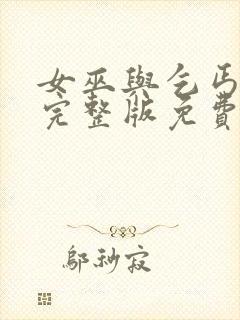 女巫與乞丐
完整版免費
鄔秒寂